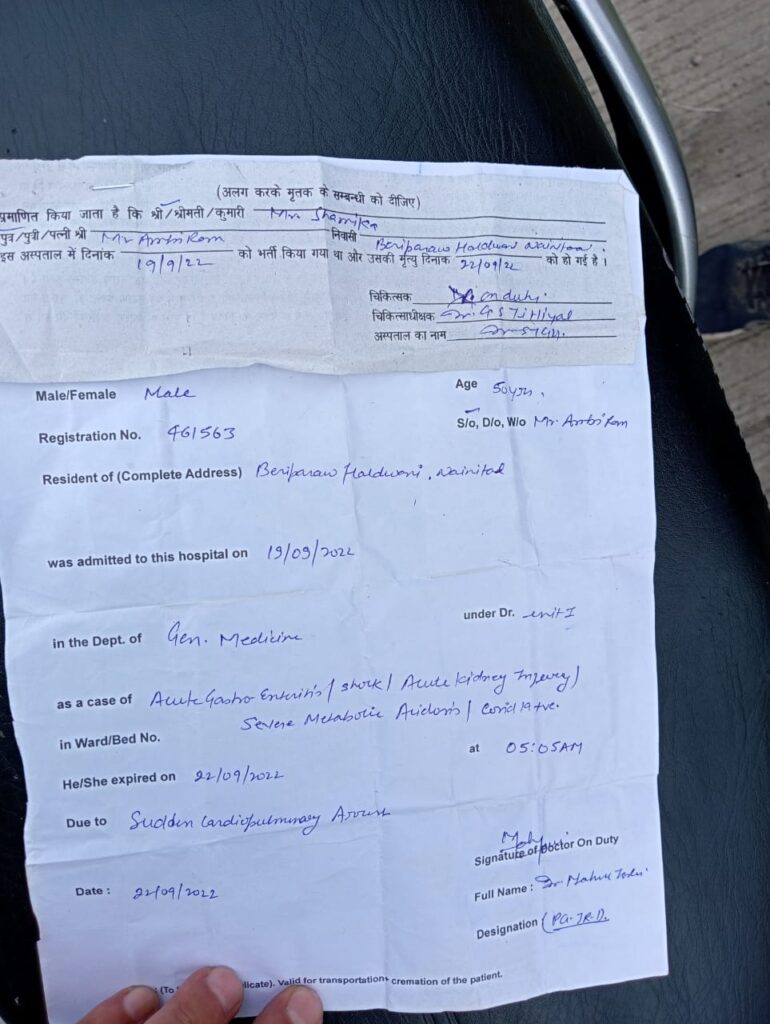 (अलग करके मृतक के सम्बन्धी को दीजिए)
प्रमाणित किया जाता है कि श्री/श्रीमती/कुमारी Mr. Shamika
पुत्र/पुत्री/पत्नी श्री Mr Ambi Ram निवासी Beriparaw Haldwani Nainital.
इस अस्पताल में दिनांक 19/9/22 को भर्ती किया गया था और उसकी मृत्यु दिनांक 22/09/22 को हो गई है।
चिकित्सक Dr. on duty.
चिकित्साधीक्षक Dr. G S Titiyal
अस्पताल का नाम Dr STGH.
Male/Female Male Age 50 yrs.
Registration No. 461563 S/o, D/o, W/o Mr. Ambi Ram
Resident of (Complete Address) Beriparaw Haldwani, Nainital
was admitted to this hospital on 19/09/2022
in the Dept. of Gen. Medicine under Dr. unit I
as a case of Acute Gastro Enteritis / Shock / Acute kidney Injury /
Severe Metabolic Acidosis / Covid 19 +ve.
in Ward/Bed No. at 05:05AM
He/She expired on 22/09/2022
Due to Sudden Cardiopulmonary Arrest
Signature of Doctor On Duty
Date : 22/09/2022 Full Name : Dr.
Designation (PG. JR-I).
(To licate). Valid for transportation cremation of the patient.